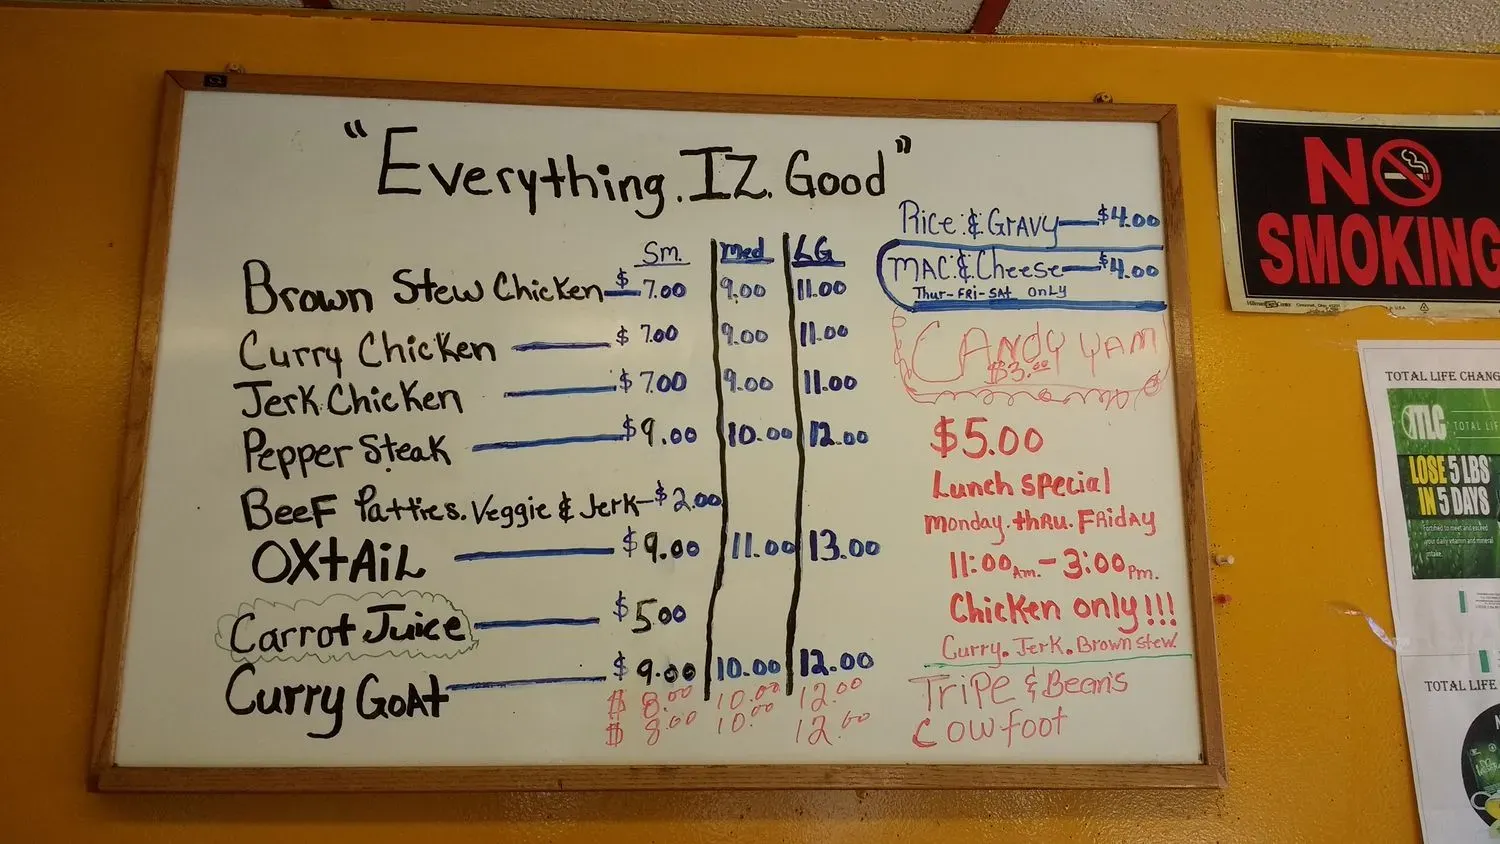 "Everything.IZ.Good"
Sm. Med LG
Brown Stew Chicken $ 7.00 9.00 11.00
Curry Chicken $ 7.00 9.00 11.00
Jerk Chicken $ 7.00 9.00 11.00
Pepper Steak $ 9.00 10.00 12.00
BeeF Patties. Veggie & Jerk-$2.00
OXtAiL $ 9.00 11.00 13.00
Carrot Juice $ 5.00
Curry GoAt $ 9.00 10.00 12.00
$ 8.00 10.00 12.00
$ 8.00 10.00 12.00
Rice & GrAVy $4.00
MAC & Cheese $4.00
Thur-FRi-SAt onLy
CANDY YAM
$3.00
$5.00
Lunch special
monday.thRu.FRiday
11:00Am.-3:00Pm.
Chicken only!!!
Curry.Jerk.Brown stew.
Tripe & Beans
Cowfoot
NO
SMOKING
TOTAL LIFE CHANG
TLC
TOTAL LIF
LOSE 5 LBS
IN 5 DAYS
TOTAL LIFE